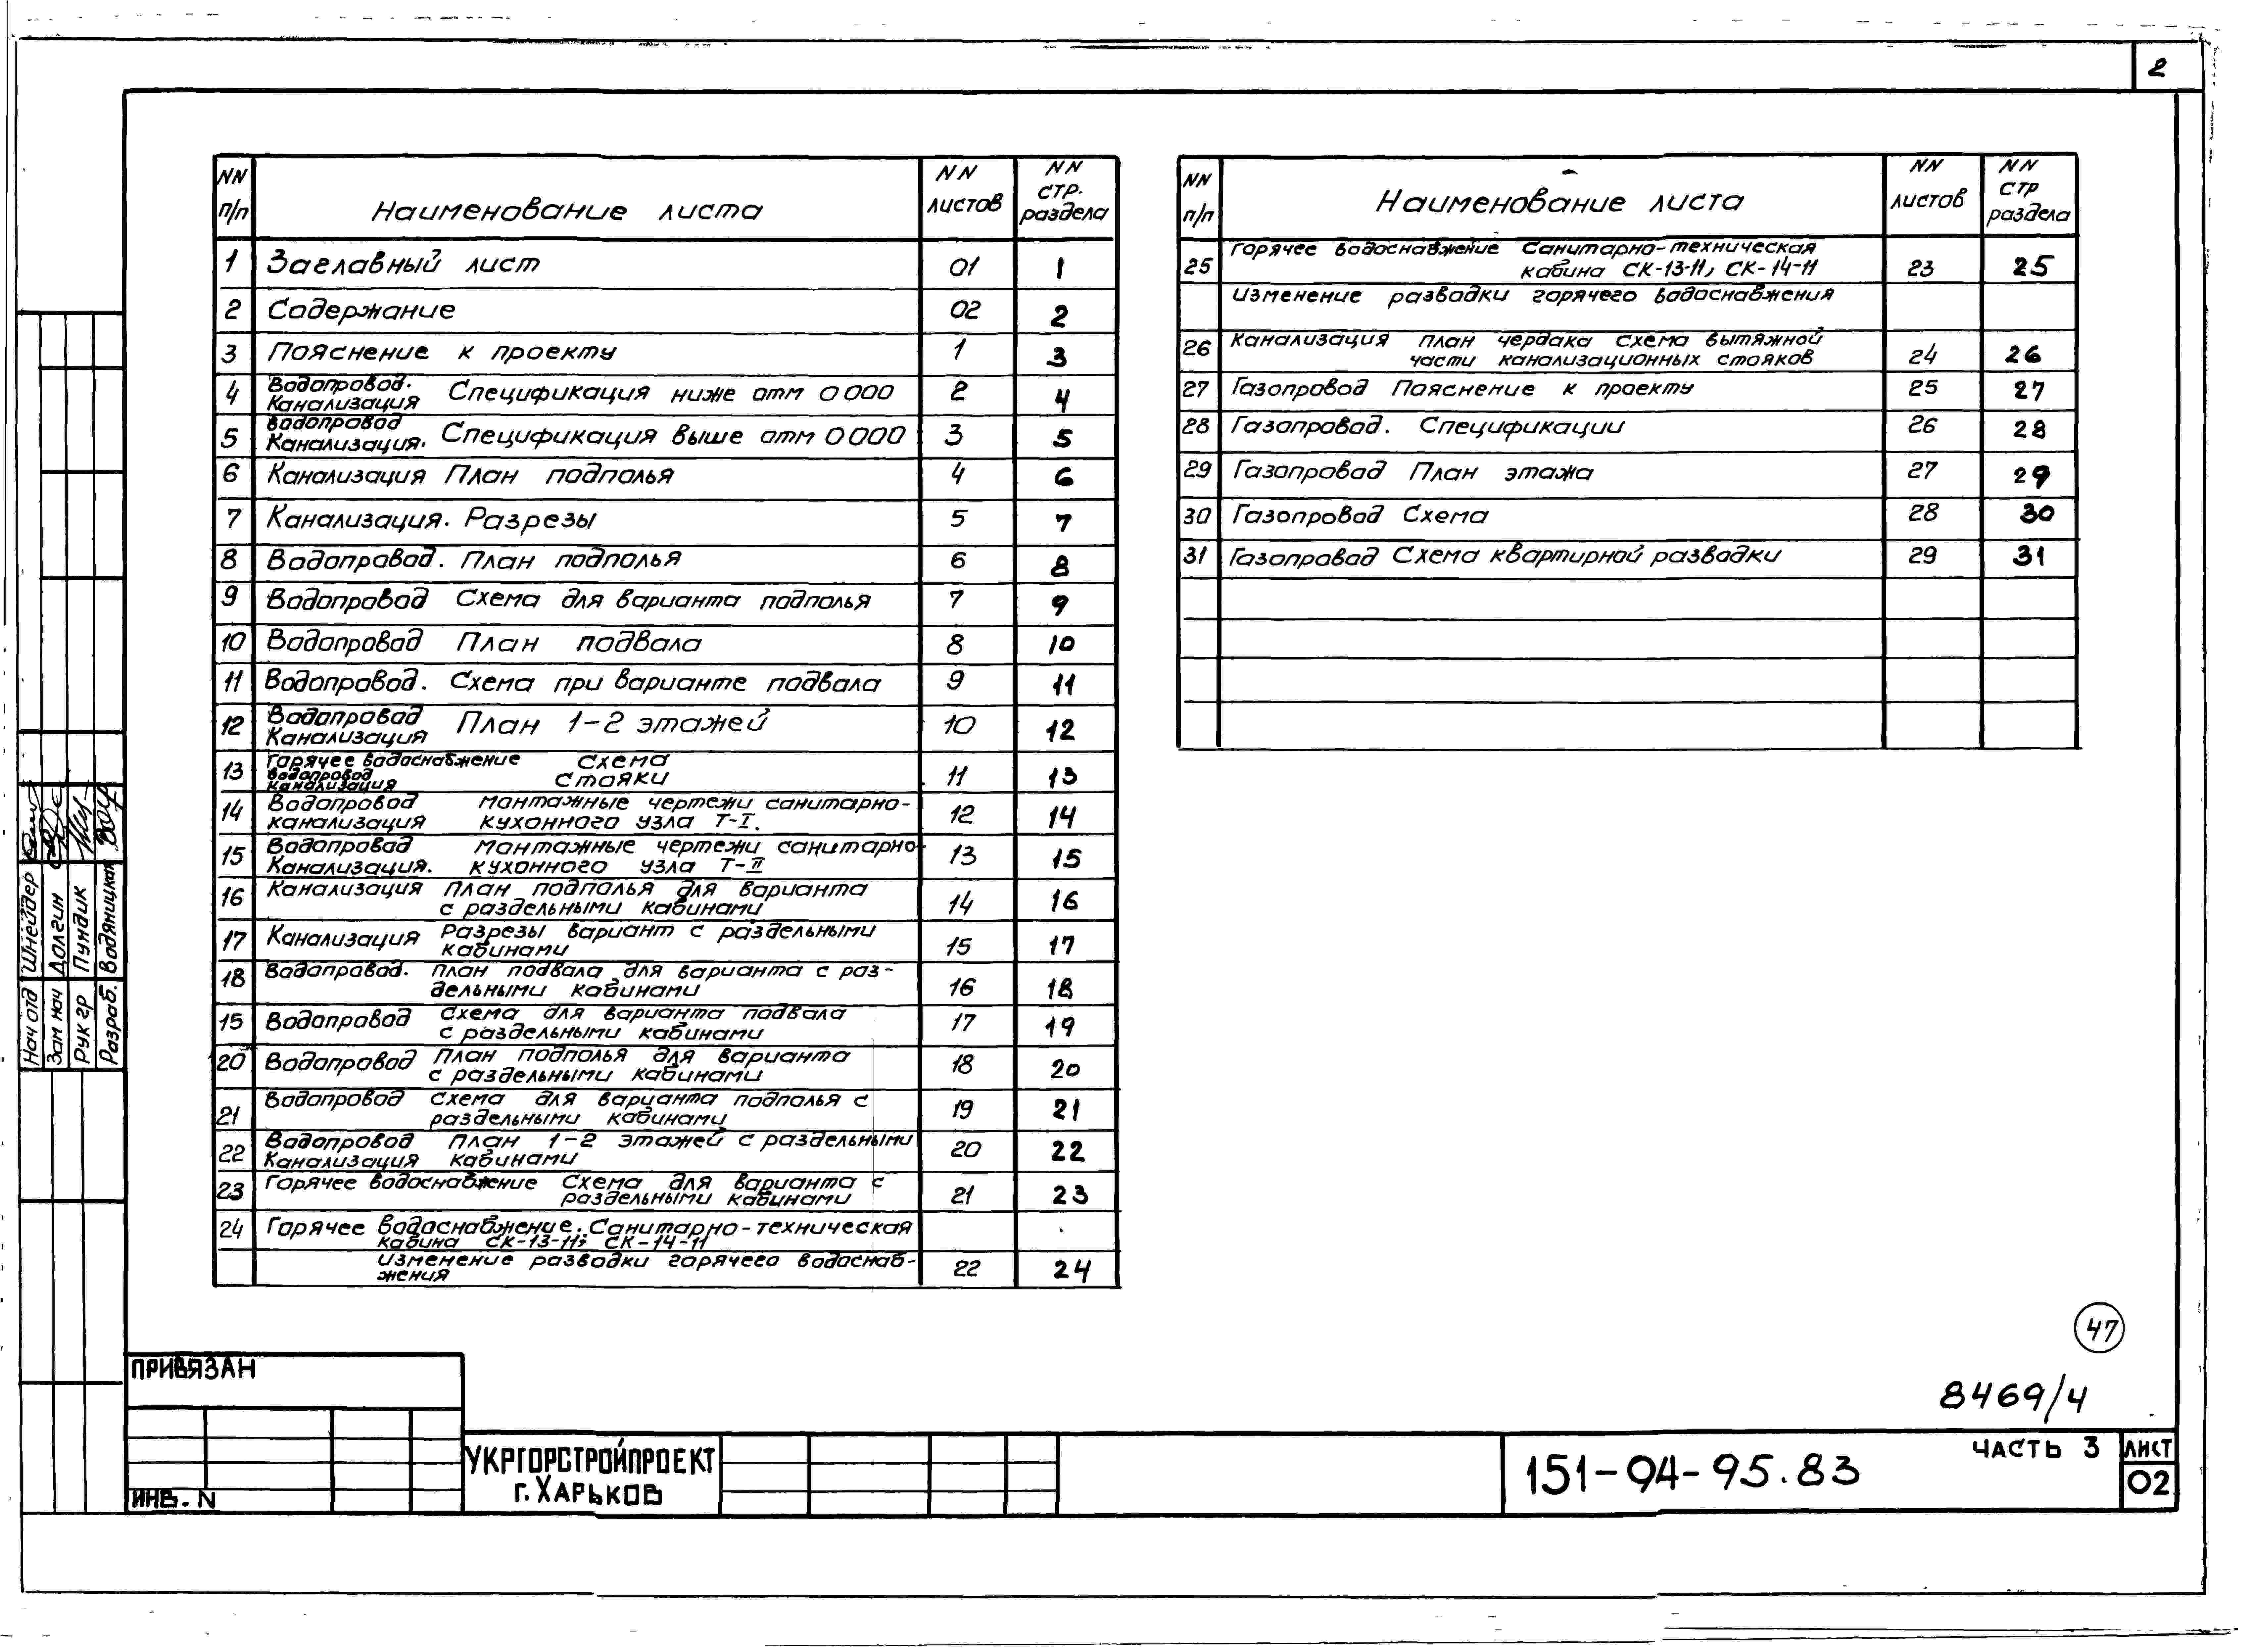 2
NN п/п Наименование листа NN листов NN стр. раздела
1 Заглавный лист 01 1
2 Содержание 02 2
3 Пояснение к проекту 1 3
4 Водопровод. Канализация Спецификация ниже отм 0 000 2 4
5 Водопровод Канализация. Спецификация выше отм 0 000 3 5
6 Канализация План подполья 4 6
7 Канализация. Разрезы 5 7
8 Водопровод. План подполья 6 8
9 Водопровод Схема для варианта подполья 7 9
10 Водопровод План подвала 8 10
11 Водопровод. Схема при варианте подвала 9 11
12 Водопровод Канализация План 1-2 этажей 10 12
13 Горячее водоснабжение Водопровод Канализация Схема Стояки 11 13
14 Водопровод Канализация Монтажные чертежи санитарно-кухонного узла Т-I. 12 14
15 Водопровод Канализация. Монтажные чертежи санитарно-кухонного узла Т-II 13 15
16 Канализация План подполья для варианта с раздельными кабинами 14 16
17 Канализация Разрезы вариант с раздельными кабинами 15 17
18 Водопровод. План подвала для варианта с раздельными кабинами 16 18
15 Водопровод Схема для варианта подвала с раздельными кабинами 17 19
20 Водопровод План подполья для варианта с раздельными кабинами 18 20
21 Водопровод Схема для варианта подполья с раздельными кабинами 19 21
22 Водопровод Канализация План 1-2 этажей с раздельными кабинами 20 22
23 Горячее водоснабжение Схема для варианта с раздельными кабинами 21 23
24 Горячее водоснабжение. Санитарно-техническая кабина СК-13-11, СК-14-11
Изменение разводки горячего водоснабжения 22 24
NN п/п Наименование листа NN листов NN стр раздела
25 Горячее водоснабжение Санитарно-техническая кабина СК-13-11, СК-14-11 23 25
Изменение разводки горячего водоснабжения
26 Канализация План чердака Схема вытяжной части канализационных стояков 24 26
27 Газопровод Пояснение к проекту 25 27
28 Газопровод. Спецификации 26 28
29 Газопровод План этажа 27 29
30 Газопровод Схема 28 30
31 Газопровод Схема квартирной разводки 29 31
Нач отд Шнейдер
Зам нач Долгин
Рук гр Пундик
Разраб. Водяницкая
47
8469/4
ПРИВЯЗАН
ИНВ. N
УКРГОРСТРОЙПРОЕКТ
г. ХАРЬКОВ
151-94-95.83
ЧАСТЬ 3
ЛИСТ
02